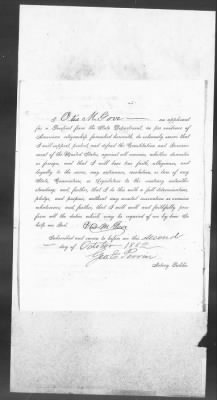 I Otis M. Gove an applicant
for a Passport from the State Department, as for evidence of
American citizenship furnished herewith, do solemnly swear that
I will support, protect, and defend the Constitution and Govern-
ment of the United States, against all enemies, whether domestic
or foreign, and that I will bear true faith, allegiance, and
loyalty to the same, any ordinance, resolution, or law of any
State, Convention, or Legislature to the contrary notwith-
standing; and further, that I do this with a full determination,
pledge, and purpose, without any mental reservation or evasion
whatsoever; and further, that I will well and faithfully per-
form all the duties which may be required of me by law. So
help me God.
Subscribed and sworn to before me this second
day of October 1882
Geo. E. Perrin
Notary Public